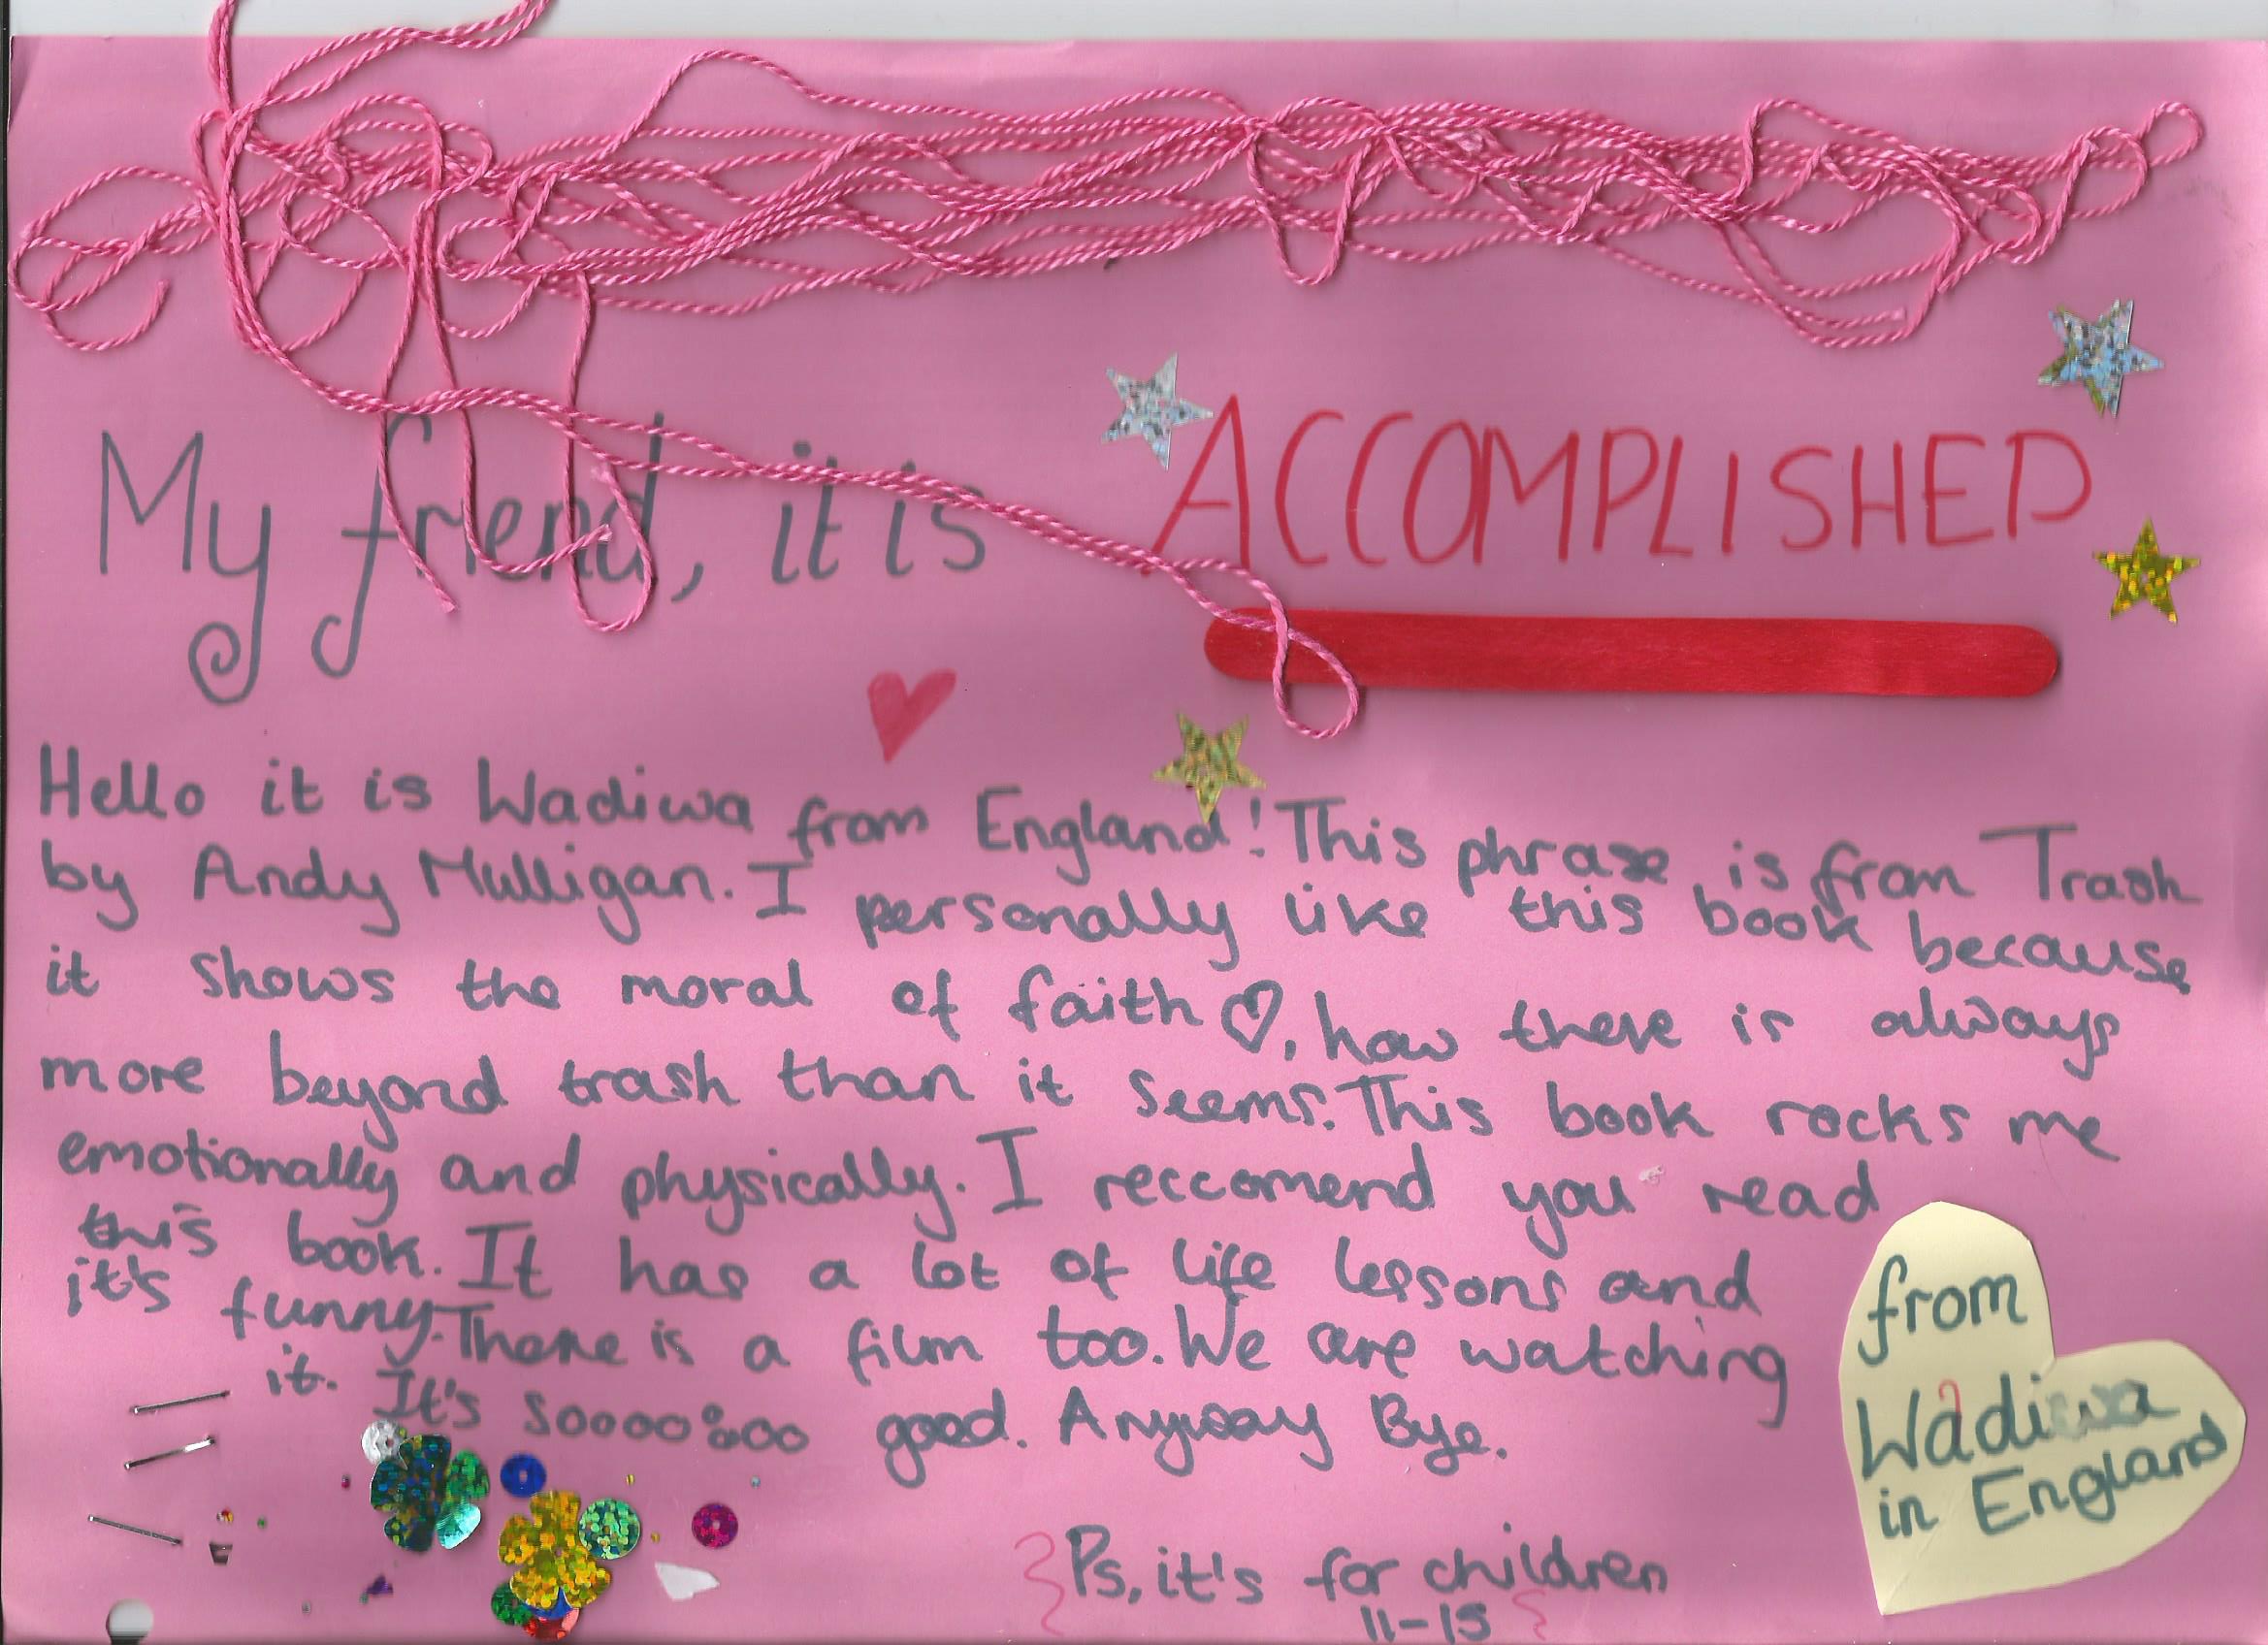 My friend, it is ACCOMPLISHED
Hello it is Wadiwa from England! This phrase is from Trash
by Andy Mulligan. I personally like this book because
it shows the moral of faith ♡, how there is always
more beyond trash than it seems. This book rocks me
emotionally and physically. I reccomend you read
this book. It has a lot of life lessons and
it's funny. There is a film too. We are watching
it. It's soooo8ooo good. Anyway Bye.
from
Wadiwa
in England
Ps, it's for children
11-15